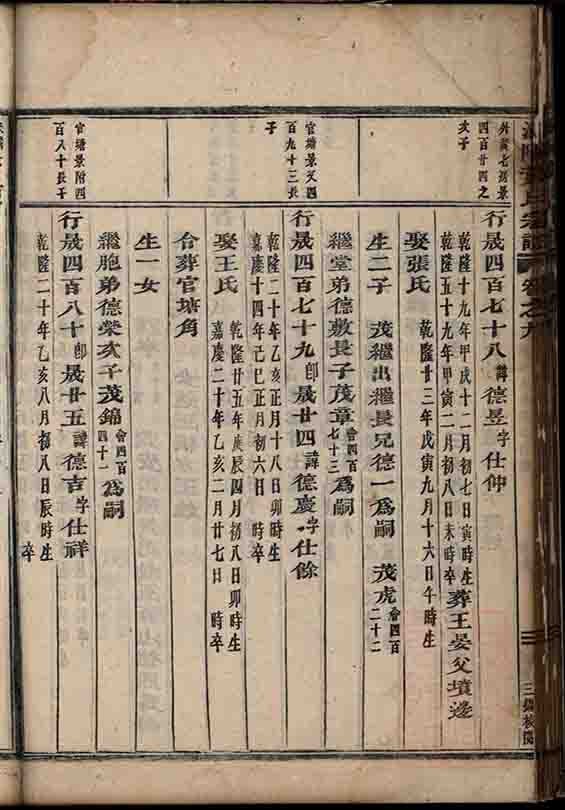 卷之九
外黃七瑤景
四百廿四之
亥子
行晟四百七十八諱德昱字仕仲
乾隆十九年甲戌十二月初七日寅時生
乾隆五十九年甲寅二月初八日未時卒
葬王晏父墳邊
娶張氏
乾隆廿三年戊寅九月十六日午時生
生二子 茂繼出繼長兄德一為嗣 茂虎會四百二十二
官塘景文四
百九十三長
子
繼堂弟德敷長子茂章會四百七十三為嗣
行晟四百七十九即晟廿四諱德慶字仕餘
乾隆二十年乙亥正月十八日卯時生
嘉慶十四年己巳正月初六日 時卒
娶王氏
乾隆廿五年庚辰四月初八日卯時生
嘉慶二十年乙亥二月廿七日 時卒
合葬官塘角
生一女
官塘景附四
百八十長子
繼胞弟德榮次子茂錦會四百四十二為嗣
行晟四百八十即晟廿五諱德吉字仕祥
乾隆二十年乙亥八月初八日辰時生
卒